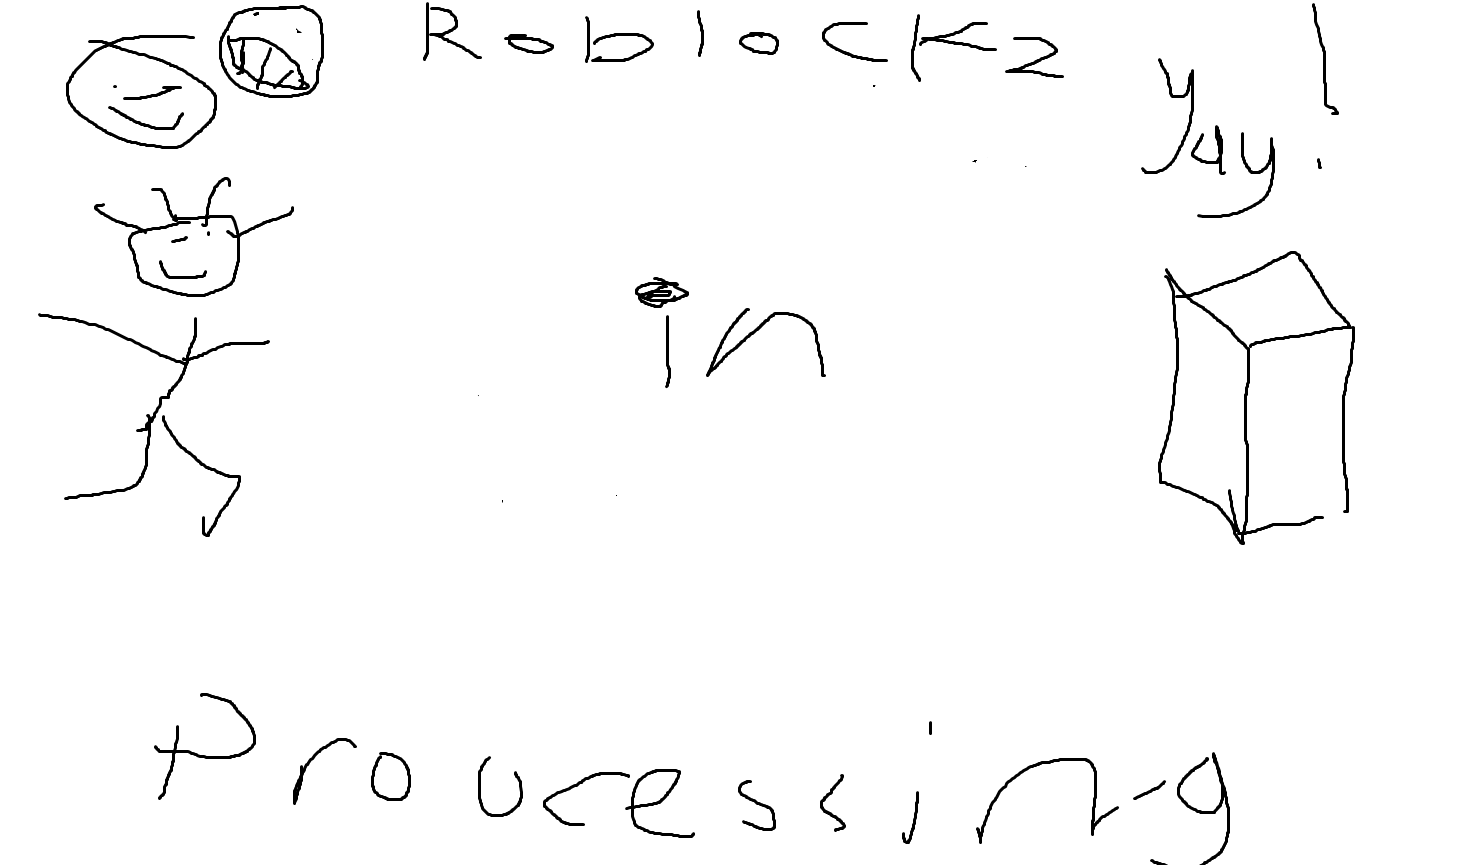 Roblockz
yay!
in
Proucessing